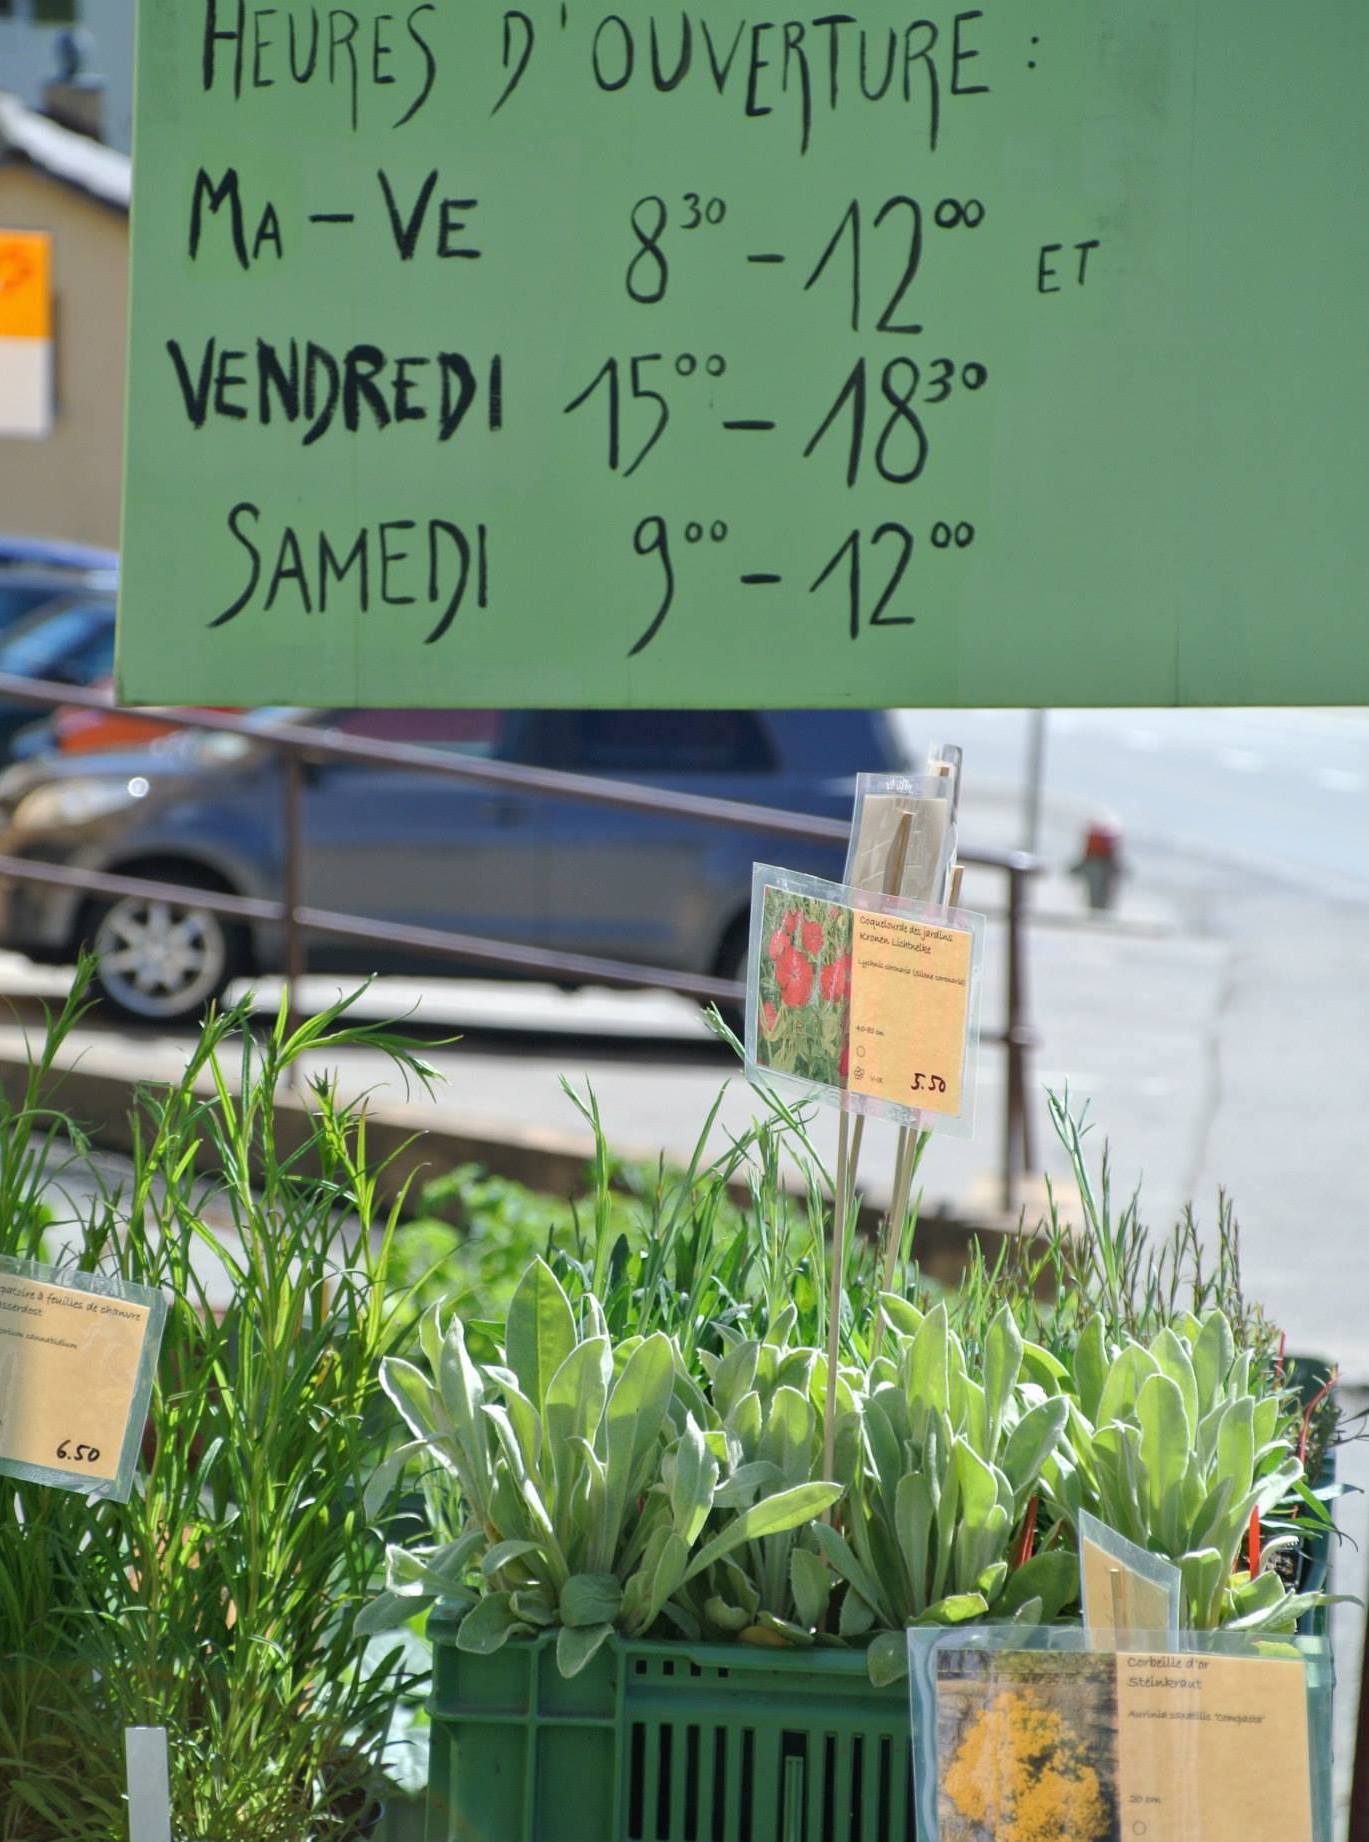 HEURES D'OUVERTURE :
MA – VE 8³⁰ – 12⁰⁰ ET
VENDREDI 15⁰⁰ – 18³⁰
SAMEDI 9⁰⁰ – 12⁰⁰
Coquelourde des jardins
Kronen Lichtnelke
Lychnis coronaria (silene coronaria)
40-80 cm
5.50
patoire à feuilles de chanvre
sserdost
orium cannabidium
6.50
Corbeille d'or
Steinkraut
Aurinia saxatilis 'Compacta'
20 cm